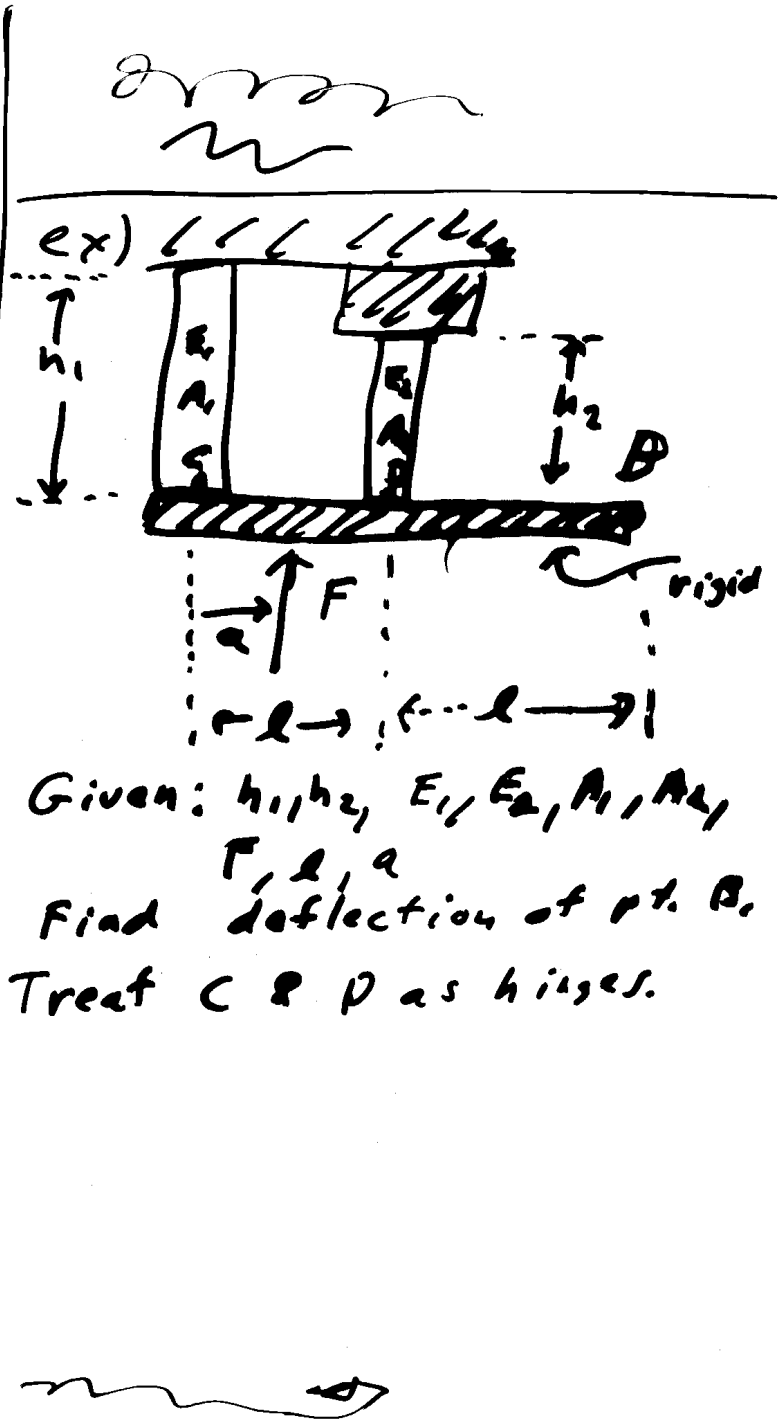 ex)
h₁
E₁
A₁
C
E₂
A₂
D
h₂
B
rigid
F
a
l
l
Given: h₁, h₂, E₁, E₂, A₁, A₂,
F, l, a
Find deflection of pt. B.
Treat C & D as hinges.